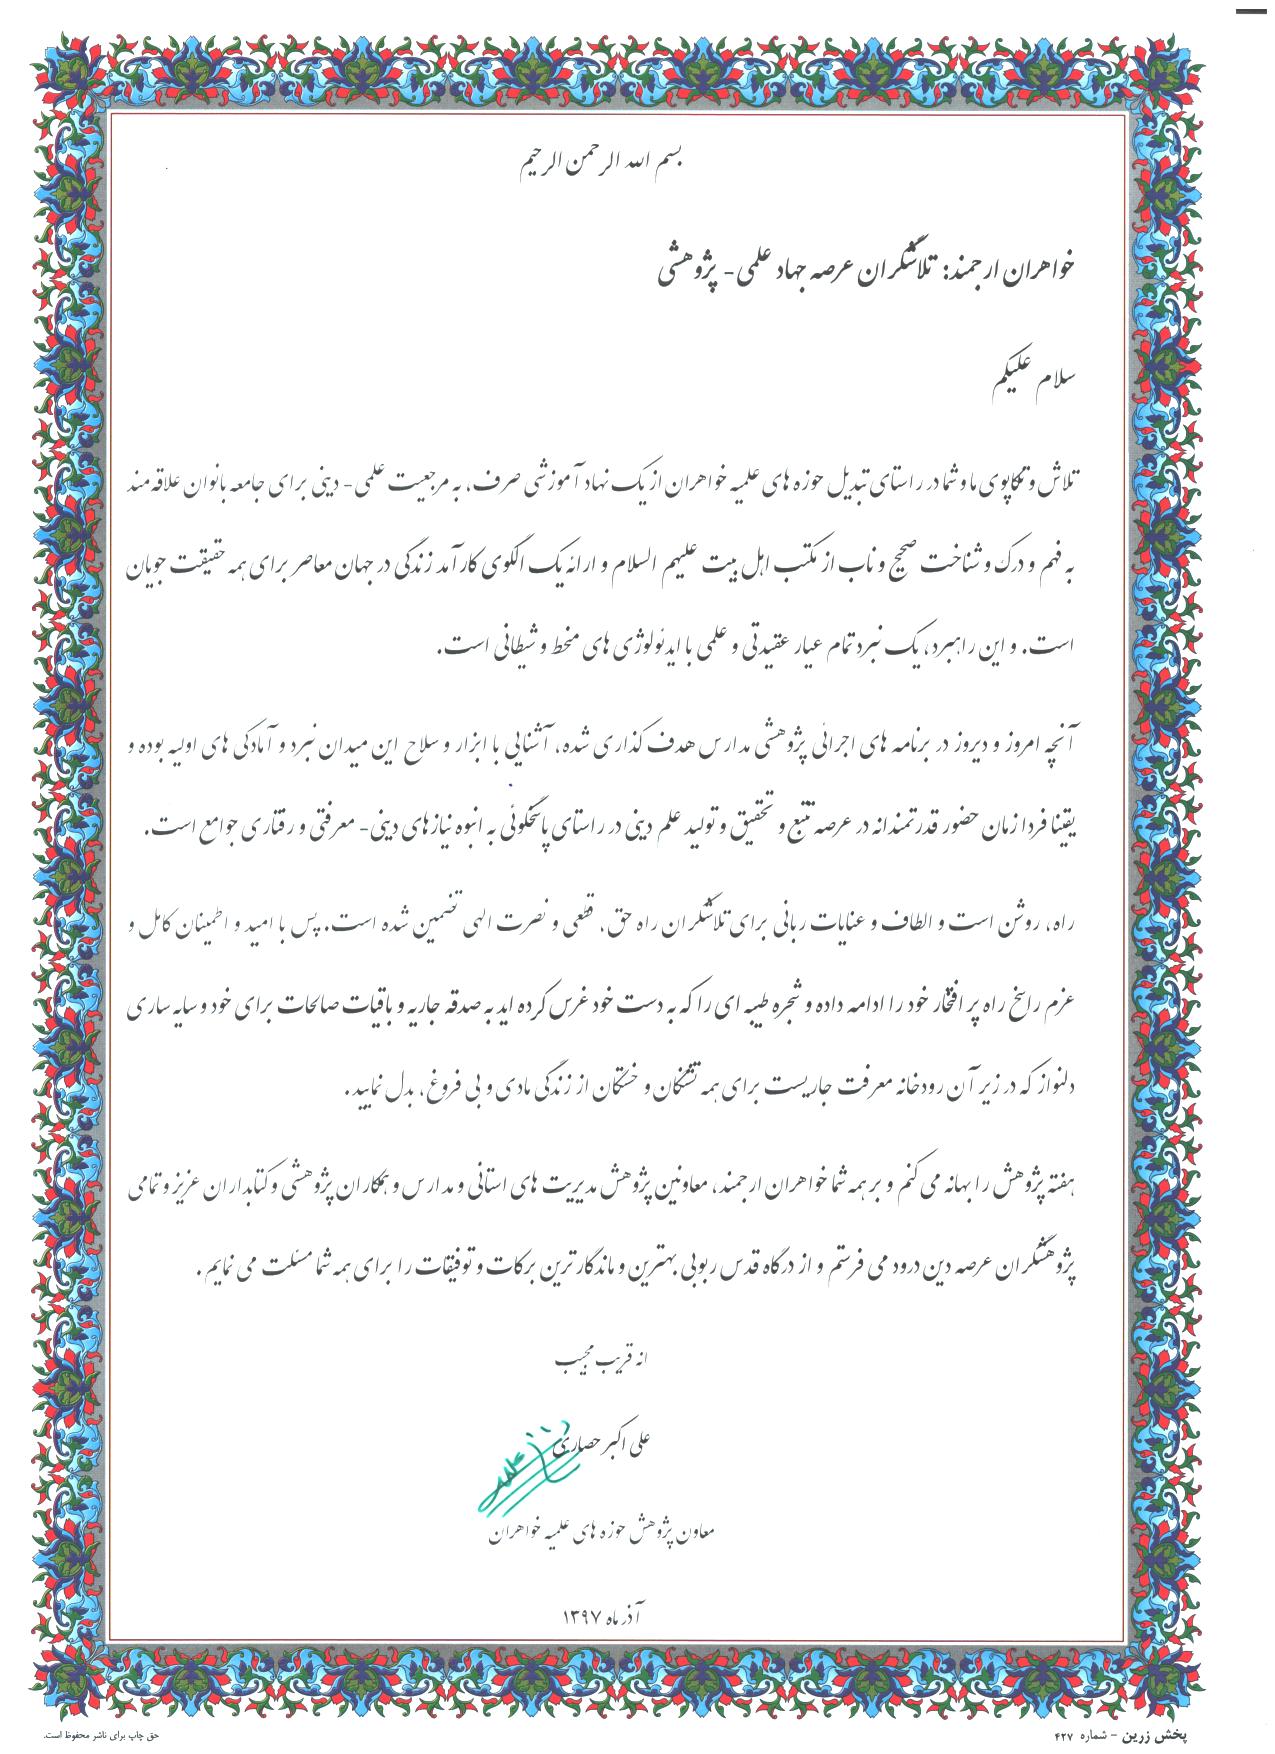 بسم الله الرحمن الرحیم
خواهران ارجمند: تلاشگران عرصه جهاد علمی- پژوهشی
سلام علیکم
تلاش و تکاپوی ما و شما در راستای تبدیل حوزه های علمیه خواهران از یک نهاد آموزشی صرف، به مرجعیت علمی- دینی برای جامعه بانوان علاقه مند
به فهم و درک و شناخت صحیح و ناب از مکتب اهل بیت علیهم السلام و ارائه یک الگوی کارآمد زندگی در جهان معاصر برای همه حقیقت جویان
است. و این راهبرد، یک نبرد تمام عیار عقیدتی و علمی با ایدئولوژی های منحط و شیطانی است.
آنچه امروز و دیروز در برنامه های اجرائی پژوهشی مدارس هدف گذاری شده، آشنایی با ابزار و سلاح این میدان نبرد و آمادگی های اولیه بوده و
یقینا فردا زمان حضور قدرتمندانه در عرصه تتبع و تحقیق و تولید علم دینی در راستای پاسخگوئی به انبوه نیازهای دینی- معرفتی و رفتاری جوامع است.
راه، روشن است و الطاف و عنایات ربانی برای تلاشگران راه حق، قطعی و نصرت الهی تضمین شده است. پس با امید و اطمینان کامل و
عزم راسخ راه پر افتخار خود را ادامه داده و شجره طیبه ای را که به دست خود غرس کرده اید به صدقه جاریه و باقیات صالحات برای خود و سایه ساری
دلنواز که در زیر آن رودخانه معرفت جاریست برای همه تشنگان و خستگان از زندگی مادی و بی فروغ، بدل نمایید.
هفته پژوهش را بهانه می کنم و بر همه شما خواهران ارجمند، معاونین پژوهش مدیریت های استانی و مدارس و همکاران پژوهشی و کتابداران عزیز و تمامی
پژوهشگران عرصه دین درود می فرستم و از درگاه قدس ربوبی بهترین و ماندگارترین برکات و توفیقات را برای همه شما مسئلت می نمایم.
انه قریب مجیب
علی اکبر حصاری
معاون پژوهش حوزه های علمیه خواهران
آذر ماه ۱۳۹۷
پخش زرین - شماره ۴۲۷
حق چاپ برای ناشر محفوظ است.